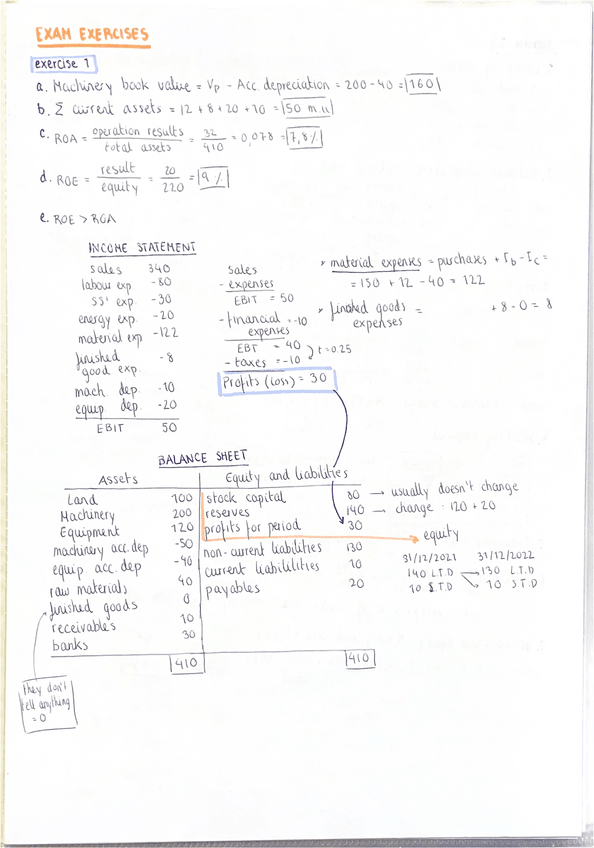 EXAM EXERCISES
exercise 1
a. Machinery book value = Vp - Acc. depreciation = 200 - 40 = 160
b. Σ current assets = 12 + 8 + 20 + 10 = 50 m.u
c. ROA = operation results / total assets = 32 / 410 = 0,078 = 7,8%
d. ROE = result / equity = 20 / 220 = 9%
e. ROE > ROA
INCOME STATEMENT
sales 340
labour exp -80
SS' exp. -30
energy exp. -20
material exp -122
finished good exp. -8
mach. dep. -10
equip dep. -20
EBIT 50
Sales
- expenses
EBIT = 50
- financial expenses = -10
EBT = 40
- taxes = -10
t = 0.25
Profits (loss) = 30
* material expenses = purchases + Ib - Ic =
= 150 + 12 - 40 = 122
* finished goods expenses = +8 - 0 = 8
BALANCE SHEET
Assets
Equity and liabilities
Land 100
Machinery 200
Equipment 120
machinery acc.dep -50
equip acc. dep -40
raw materials 40
finished goods 0
receivables 10
banks 30
410
stock capital 80 → usually doesn't change
reserves 140 → change : 120 + 20
profits for period 30
equity
non-current liabilities 130
current liabililities 10
payables 20
410
31/12/2021 31/12/2022
140 L.T.D → 130 L.T.D
10 S.T.D 10 S.T.D
They don't
tell anything
= 0